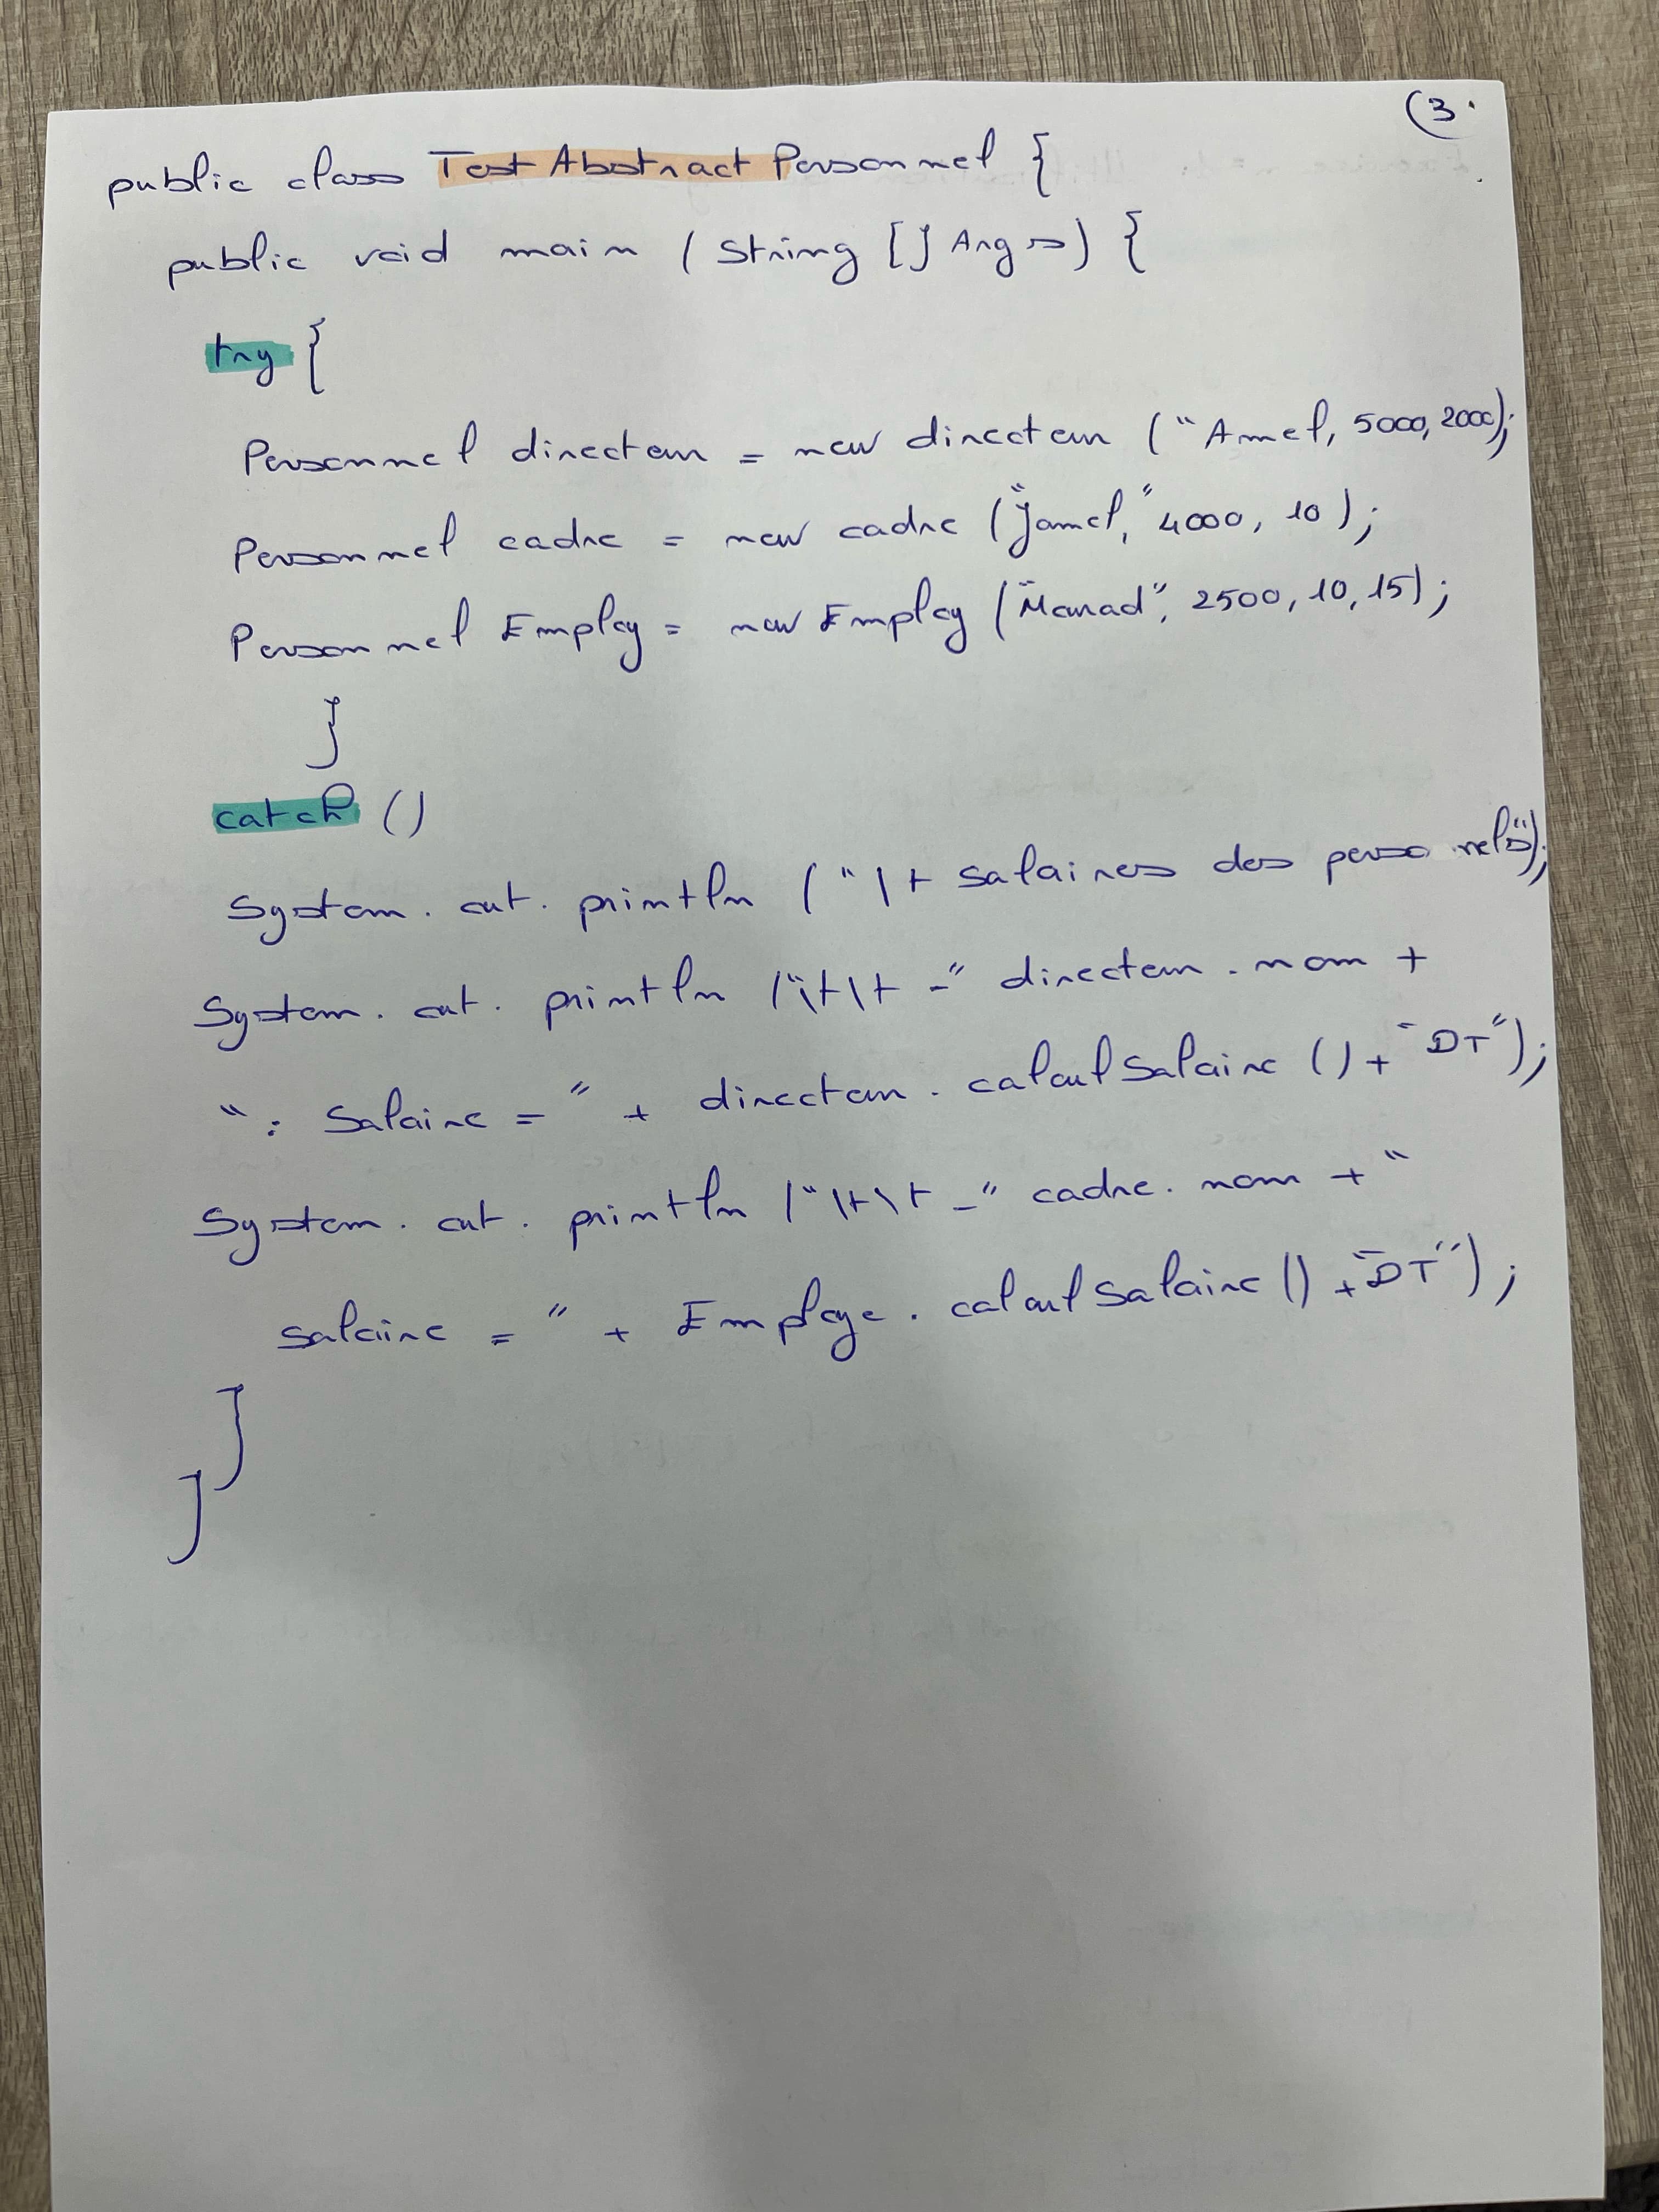 (3.
public class Test Abstract Personnel {
public void main (String [] Args) {
try {
Personnel directeur = new directeur ("Amel, 5000, 2000);
Personnel cadre = new cadre ("Jamel," 4000, 10);
Personnel Employ = new Employ ("Mourad", 2500, 10, 15);
}
catch ()
System. out. println ("\t salaires des perso nels");
System. out. println ("\t\t -" directeur. nom +
": Salaire = " + directeur. calculSalaire () + "DT");
System. out. println ("\t\t -" cadre. nom + "
salaire = " + Employe. calculSalaire () + "DT");
}
}